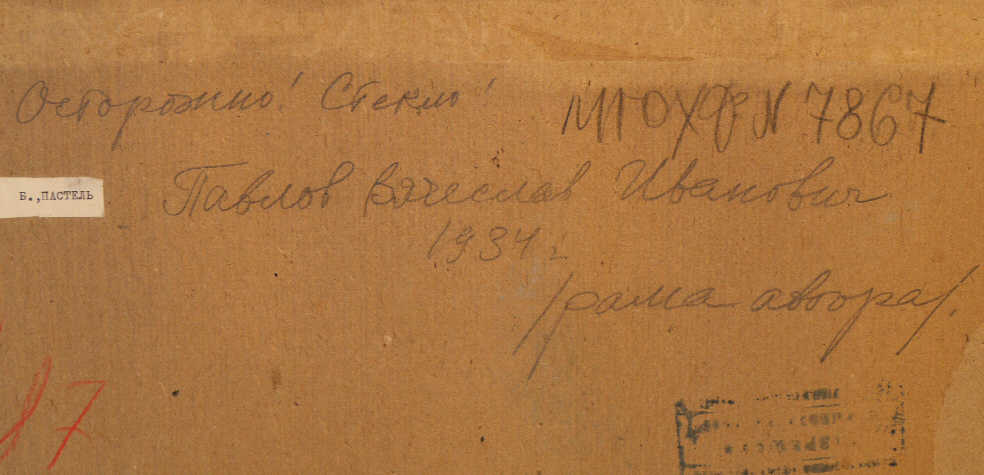 Осторожно! Стекло!
МТОХФ N 7867
Б.,ПАСТЕЛЬ
Павлов Вячеслав Иванович
1934 г.
/рама автора/.
17